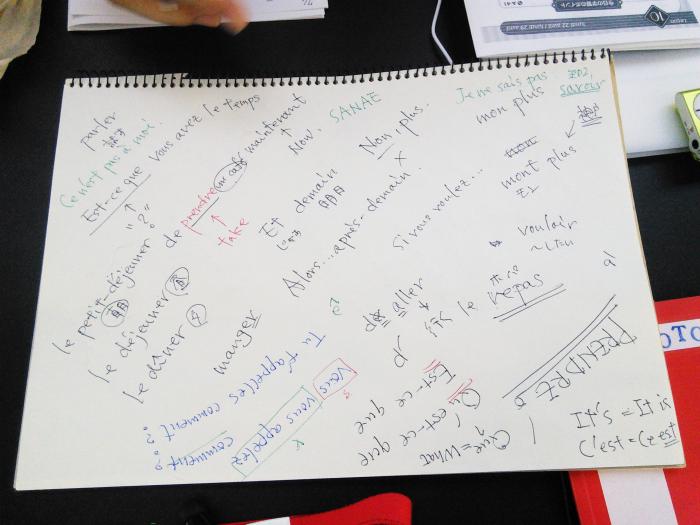 parler
Ce n'est pas à moi.
Est-ce que vous avez le temps
"↑?"
de prendre un café maintenant
↑
take
↑
Now.
SANAE
Non, plus.
×
Je ne sais pas
mon plus
savoir
mont plus
Et demain
Alors... après-demain.
Si vous voulez...
vouloir
le petit-déjeuner
le déjeuner
le dîner
manger
aller
le repas
à
PRENDRE
Tu t'appelles comment ?
Vous vous appelez comment ?
Est-ce que
Qu'est-ce que
Que = What
It's = It is
C'est = Ce est
Leçon 10
lundi 22 avril / lundi 29 avril
OTO